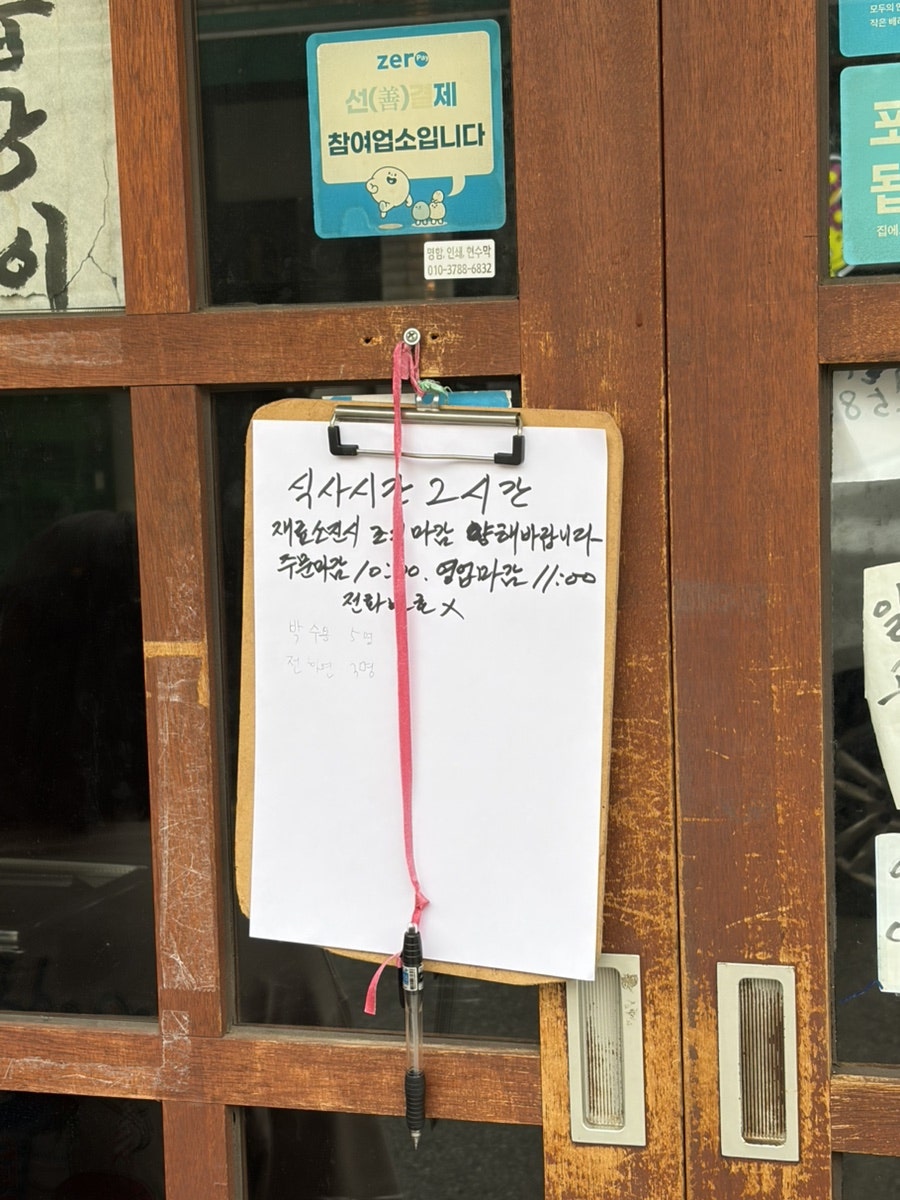 이
zero Pay
선(善)결제
참여업소입니다
명함, 인쇄, 현수막
010-3788-6832
식사시간 2시간
재료소진시 조기마감 양해바랍니다
주문마감 10:00. 영업마감 11:00
전화번호 X
박수용 5명
전하면 3명
모두의
작은
포
됩
집에